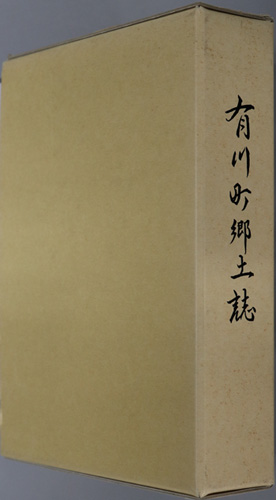 有川町郷土誌